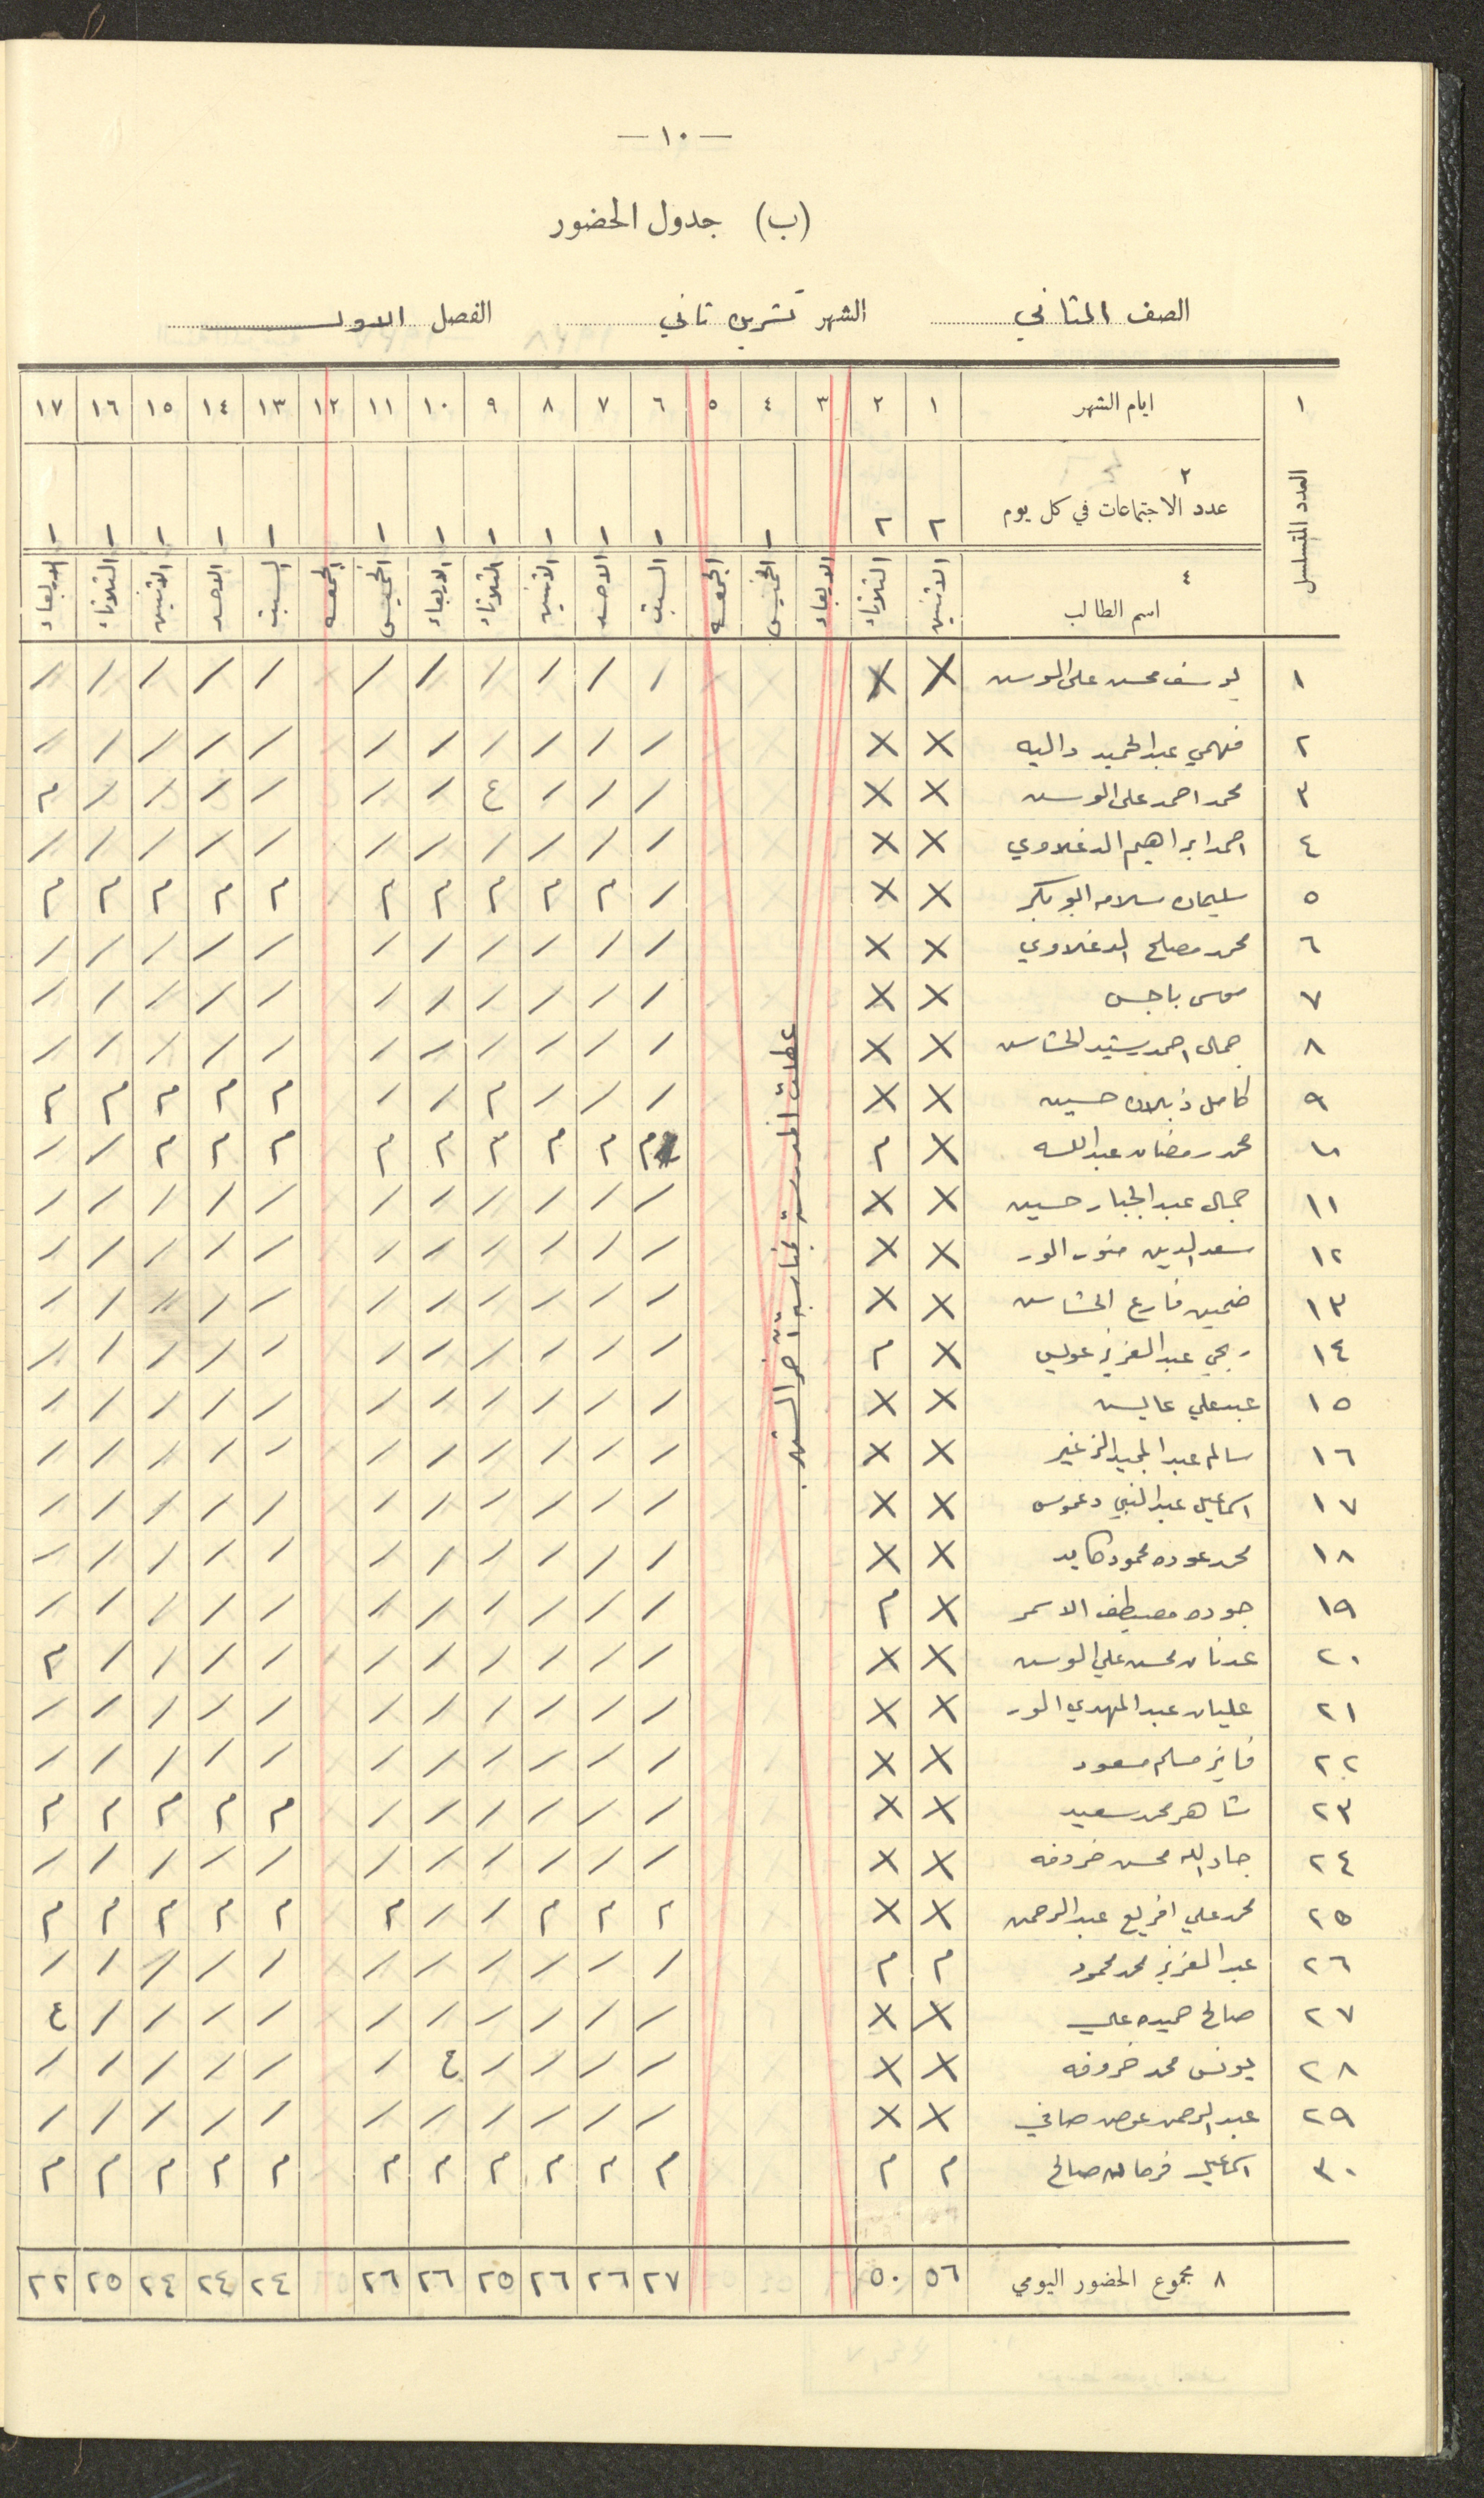 — ١٠ —
(ب) جدول الحضور
الصف الثاني الشهر تشرين ثاني الفصل الاول
١ ايام الشهر ١ ٢ ٣ ٤ ٥ ٦ ٧ ٨ ٩ ١٠ ١١ ١٢ ١٣ ١٤ ١٥ ١٦ ١٧
العدد المتسلسل
٢
عدد الاجتماعات في كل يوم ٢ ٢ ١ ١ ١ ١ ١ ١ ١ ١ ١ ١ ١ ١
٣
اسم الطالب الاثنين الثلاثاء الاربعاء الخميس الجمعه السبت الاحد الاثنين الثلاثاء الاربعاء الخميس الجمعه السبت الاحد الاثنين الثلاثاء الاربعاء
عطلت المدرسة بمناسبة
١ يوسف محسن علي X X / / / / / / / / / / /
٢ فهمي عبد الحميد داليه X X / / / / / / / / / / /
٣ محمد احمد علي X X / / / ع / / / / / / م
٤ احمد ابراهيم الدغلاوي X X / / / / / / / / / / /
٥ سليمان سلامه ابو بكر X X / م م م م م م م م م م
٦ محمد مصلح الدغلاوي X X / / / / / / / / / / /
٧ موسى باجس X X / / / / / / / / / / /
٨ جمال احمد رشيد X X / / / / / / / / / / /
٩ كامل ذبلان حسين X X / / / م / / م م م م م
١٠ محمد رمضان عبد الله X م م م م م م م م م م / /
١١ جمال عبد الجبار حسين X X / / / / / / / / / / /
١٢ سعد الدين منور X X / / / / / / / / / / /
١٣ فارع X X / / / / / / / / / / /
١٤ ربحي عبد العزيز عويس X م / / / / / / / / / / /
١٥ عبد علي عايس X X / / / / / / / / / / /
١٦ سالم عبد المجيد الزغير X X / / / / / / / / / / /
١٧ اسماعيل عبد النبي دعموس X X / / / / / / / / / / /
١٨ محمد عوده محمود كايد X X / / / / / / / / / / /
١٩ جوده مصيطف الاسمر X م / / / / / / / / / / /
٢٠ عدنان محسن علي X X / / / / / / / / / / م
٢١ عليان عبد المهدي X X / / / / / / / / / / /
٢٢ فايز مسلم مسعود X X / / / / / / / / / / /
٢٣ شاهر محمد سعيد X X / / / / / / م م م م م
٢٤ جاد الله محسن خروفه X X / / / / / / / / / / /
٢٥ محمد علي افريع عبد الرحمن X X م م م / / م م م م م م
٢٦ عبد العزيز محمد محمود م م / / / / / / / / / / /
٢٧ صالح حميده علي X X / / / / / / / / / / ع
٢٨ يونس محمد خروفه X X / / / / ع / / / / / /
٢٩ عبد الرحمن عوض صافي X X / / / / / / / / / / /
٣٠ اسماعيل فرحان صالح م م م م م م م م م م م م م
٨ مجموع الحضور اليومي ٥٦ ٥٠ ٢٧ ٢٦ ٢٦ ٢٥ ٢٦ ٢٦ ٢٤ ٢٤ ٢٤ ٢٥ ٢٢